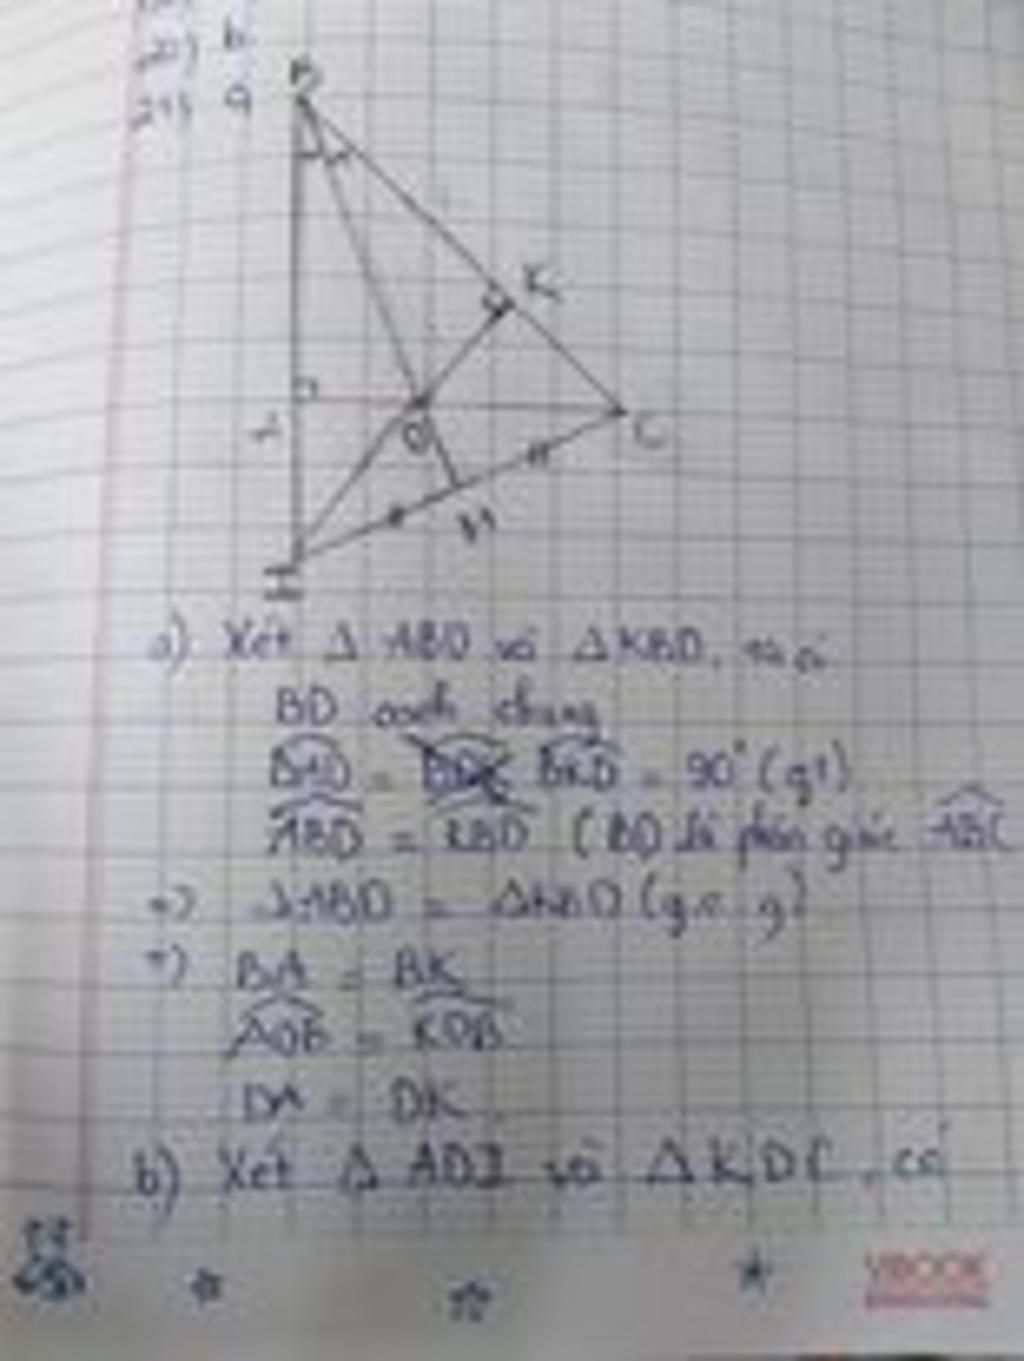 20) b
21) a
B
K
D
C
M
H
a) Xét Δ ABD và Δ KBD, ta có
BD cạnh chung
BAD = BKD = 90° (gt)
ABD = KBD (BD là phân giác ABC
=) ΔABD = ΔKBD (g.c.g)
=) BA = BK
ADB = KDB
DA = DK
b) Xét Δ ADI và Δ KDC, có
VBOOK